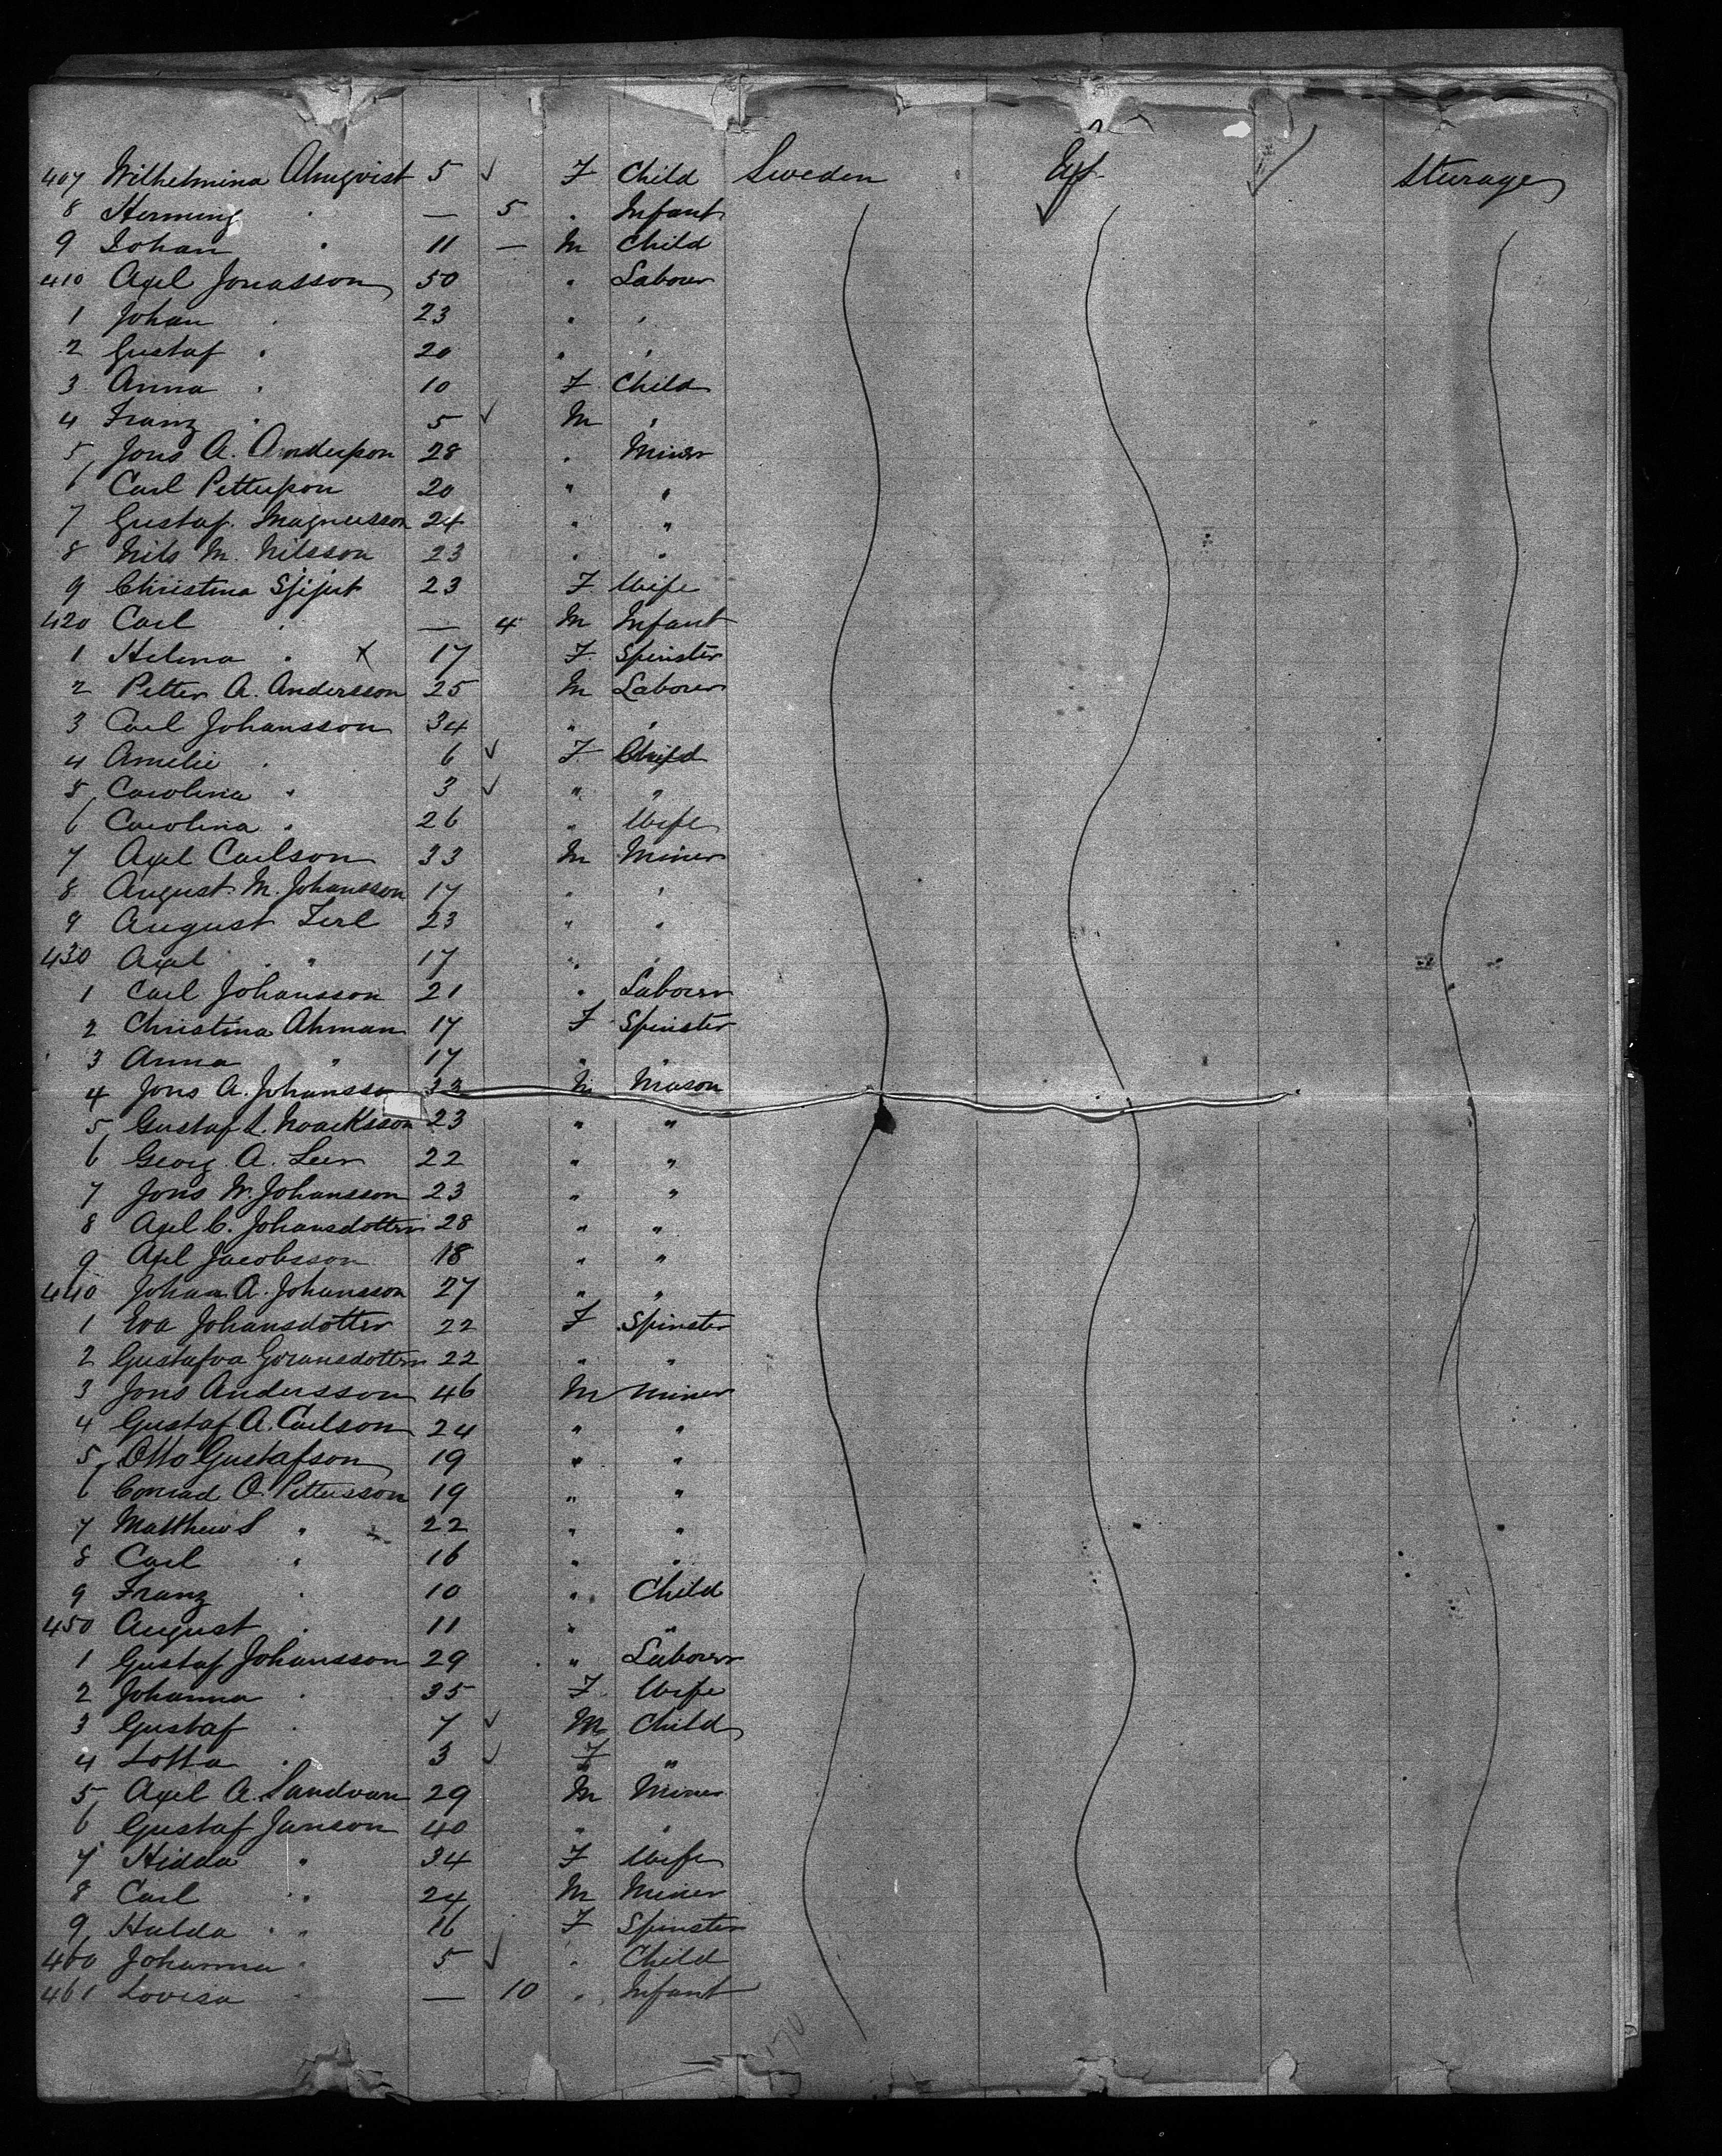 407 Wilhelmina Almqvist 5 ✓ F Child Sweden U.S. ✓ Sturage
8 Herming " — 5 " Infant
9 Johan " 11 — M Child
410 Axel Jonasson 50 " Labourer
1 Johan " 23 " "
2 Gustaf " 20 " "
3 Anna " 10 F Child
4 Franz " 5 ✓ M "
5 Jons A. Andersson 28 " Miner
6 Carl Pettersson 20 " "
7 Gustaf Magnusson 24 " "
8 Nils M. Nilsson 23 " "
9 Christina 23 F Wife
420 Carl " — 4 M Infant
1 Helena " X 17 F Spinster
2 Petter A. Andersson 25 M Laborer
3 Carl Johansson 34 " "
4 Amelie " 6 ✓ F Child
5 Carolina " 3 ✓ " "
6 Carolina " 26 " Wife
7 Axel Carlson 33 M Miner
8 August M. Johansson 17 " "
9 August 23 " "
430 Axel " 17 " "
1 Carl Johansson 21 " Laborer
2 Christina Ahman 17 F Spinster
3 Anna " 17 " "
4 Jons A. Johansson 33 M Mason
5 Gustaf L. Noaksson 23 " "
6 Georg A. 22 " "
7 Jons W. Johansson 23 " "
8 Axel C. Johansdotter 28 " "
9 Axel Jacobsson 18 " "
440 Johan A. Johansson 27 " "
1 Eva Johansdotter 22 F Spinster
2 Gustafva Goransdotter 22 " "
3 Jons Andersson 46 M Miner
4 Gustaf A. Carlson 24 " "
5 Otto Gustafson 19 " "
6 Conrad O. Pettersson 19 " "
7 Matthew S " 22 " "
8 Carl " 16 " "
9 Franz " 10 " Child
450 August " 11 " "
1 Gustaf Johansson 29 " Laborer
2 Johanna " 35 F Wife
3 Gustaf " 7 ✓ M Child
4 Lotta " 3 ✓ F "
5 Axel A. Sandvan 29 M Miner
6 Gustaf Janson 40 " "
7 Hidda " 34 F Wife
8 Carl " 24 M Miner
9 Hulda " 16 F Spinster
460 Johanna " 5 ✓ " Child
461 Lovisa " — 10 " Infant